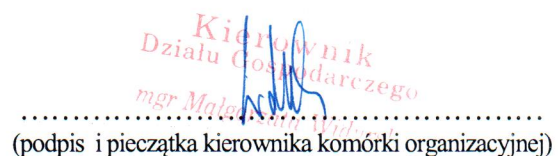 Kierownik
Działu Gospodarczego
mgr Małgorzata
........................................................................
(podpis i pieczątka kierownika komórki organizacyjnej)